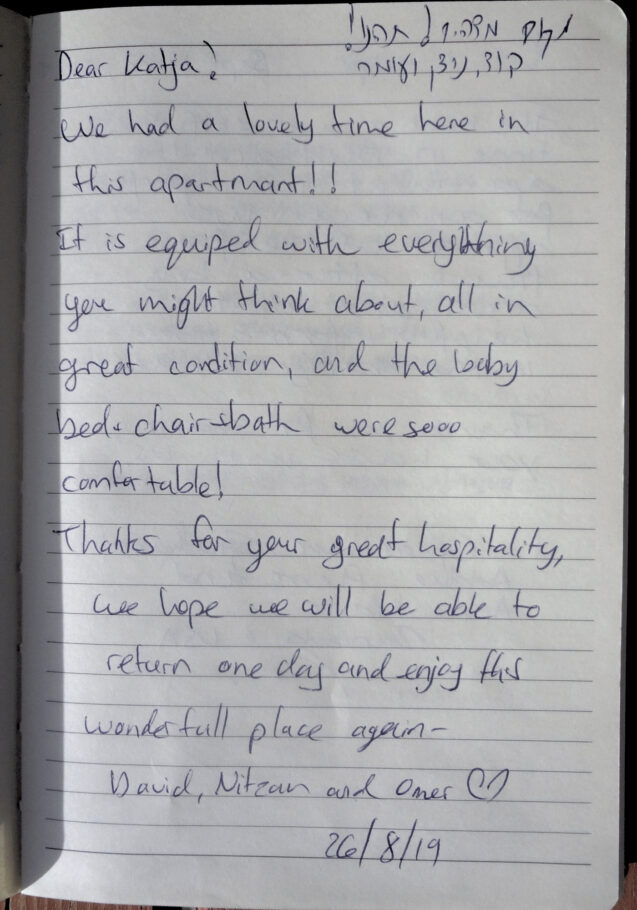 מקום מדהים! תהנו!
דוד, ניצן ועומר
Dear Katja!
We had a lovely time here in
this apartmant!!
It is equiped with everything
you might think about, all in
great condition, and the baby
bed+chair+bath were sooo
comfortable!
Thanks for your great hospitality,
we hope we will be able to
return one day and enjoy this
wonderfull place again-
David, Nitzan and Omer ♡
26/8/19